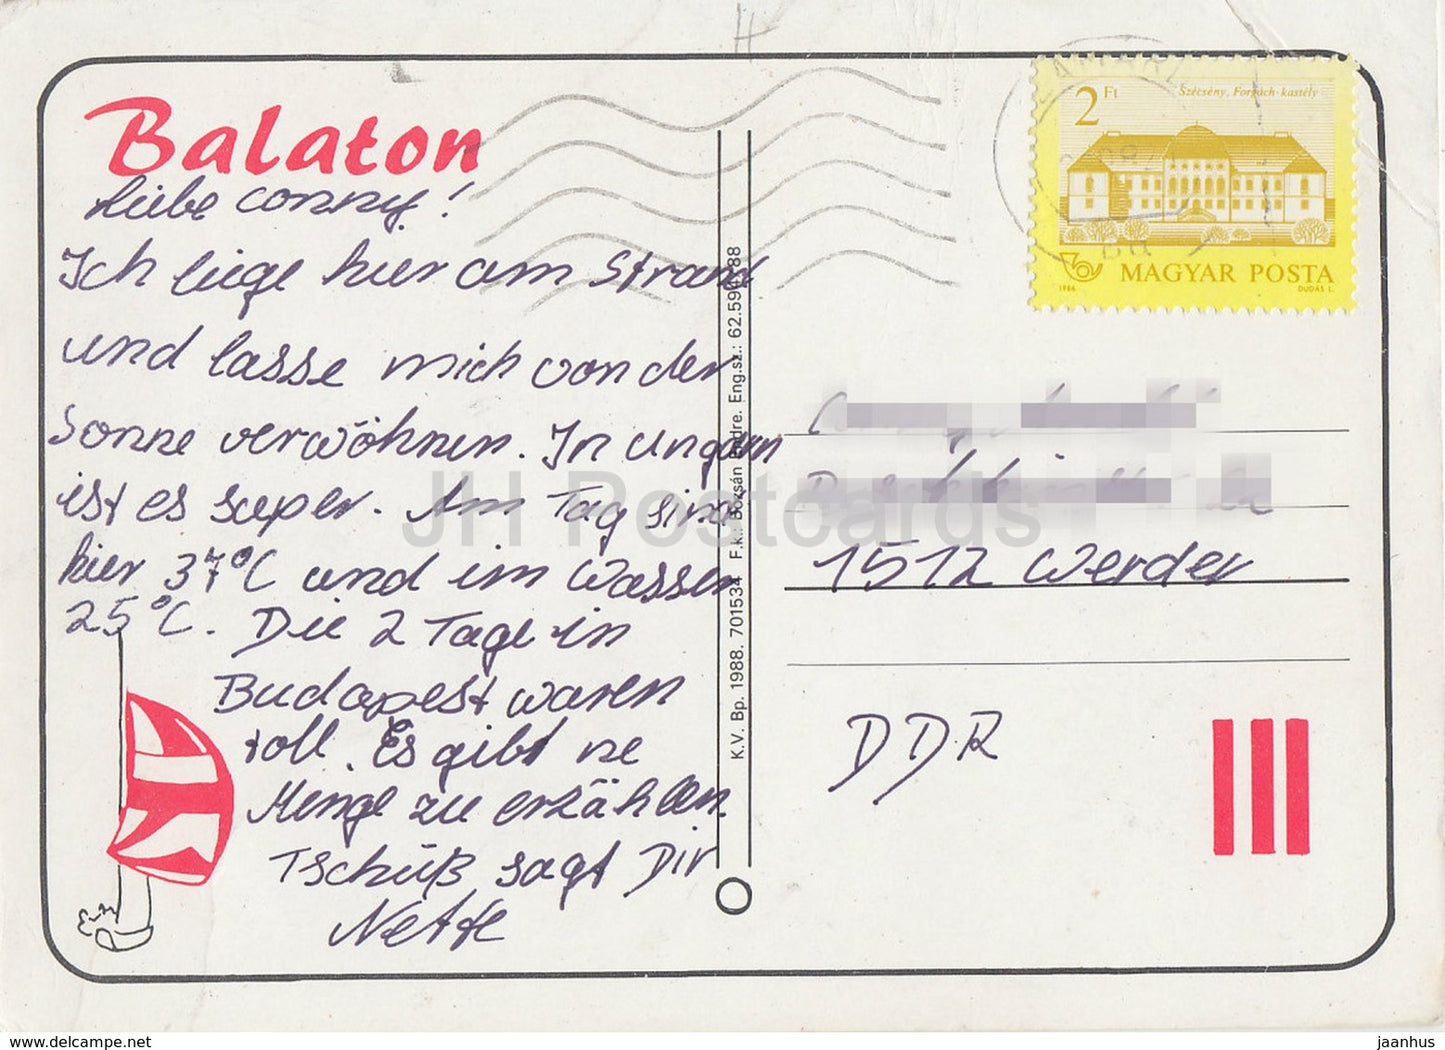 Balaton
Liebe Conny!
Ich liege hier am Strand
und lasse mich von der
Sonne verwöhnen. In Ungarn
ist es super. Am Tag sind
hier 37°C und im Wasser
25°C. Die 2 Tage in
Budapest waren
toll. Es gibt ne
Menge zu erzählen.
Tschüß sagt Dir
Nette
K.V. Bp. 1988. 701534 F.k.: Bozsán Endre. Eng.sz.: 62.590/88
2 Ft
Szécsény, Forgách-kastély
MAGYAR POSTA
1986
DUDÁS L.
1512 Werder
DDR
JH Postcards
www.delcampe.net
jaanhus